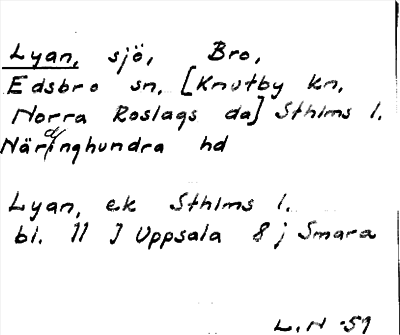 Lyan, sjö, Bro,
Edsbro sn. [Knutby kn,
Norra Roslags da] Sthlms l.
Närdinghundra hd
Lyan, ek Sthlms l.
bl. 11 J Uppsala 8 j Smara
L. N -59